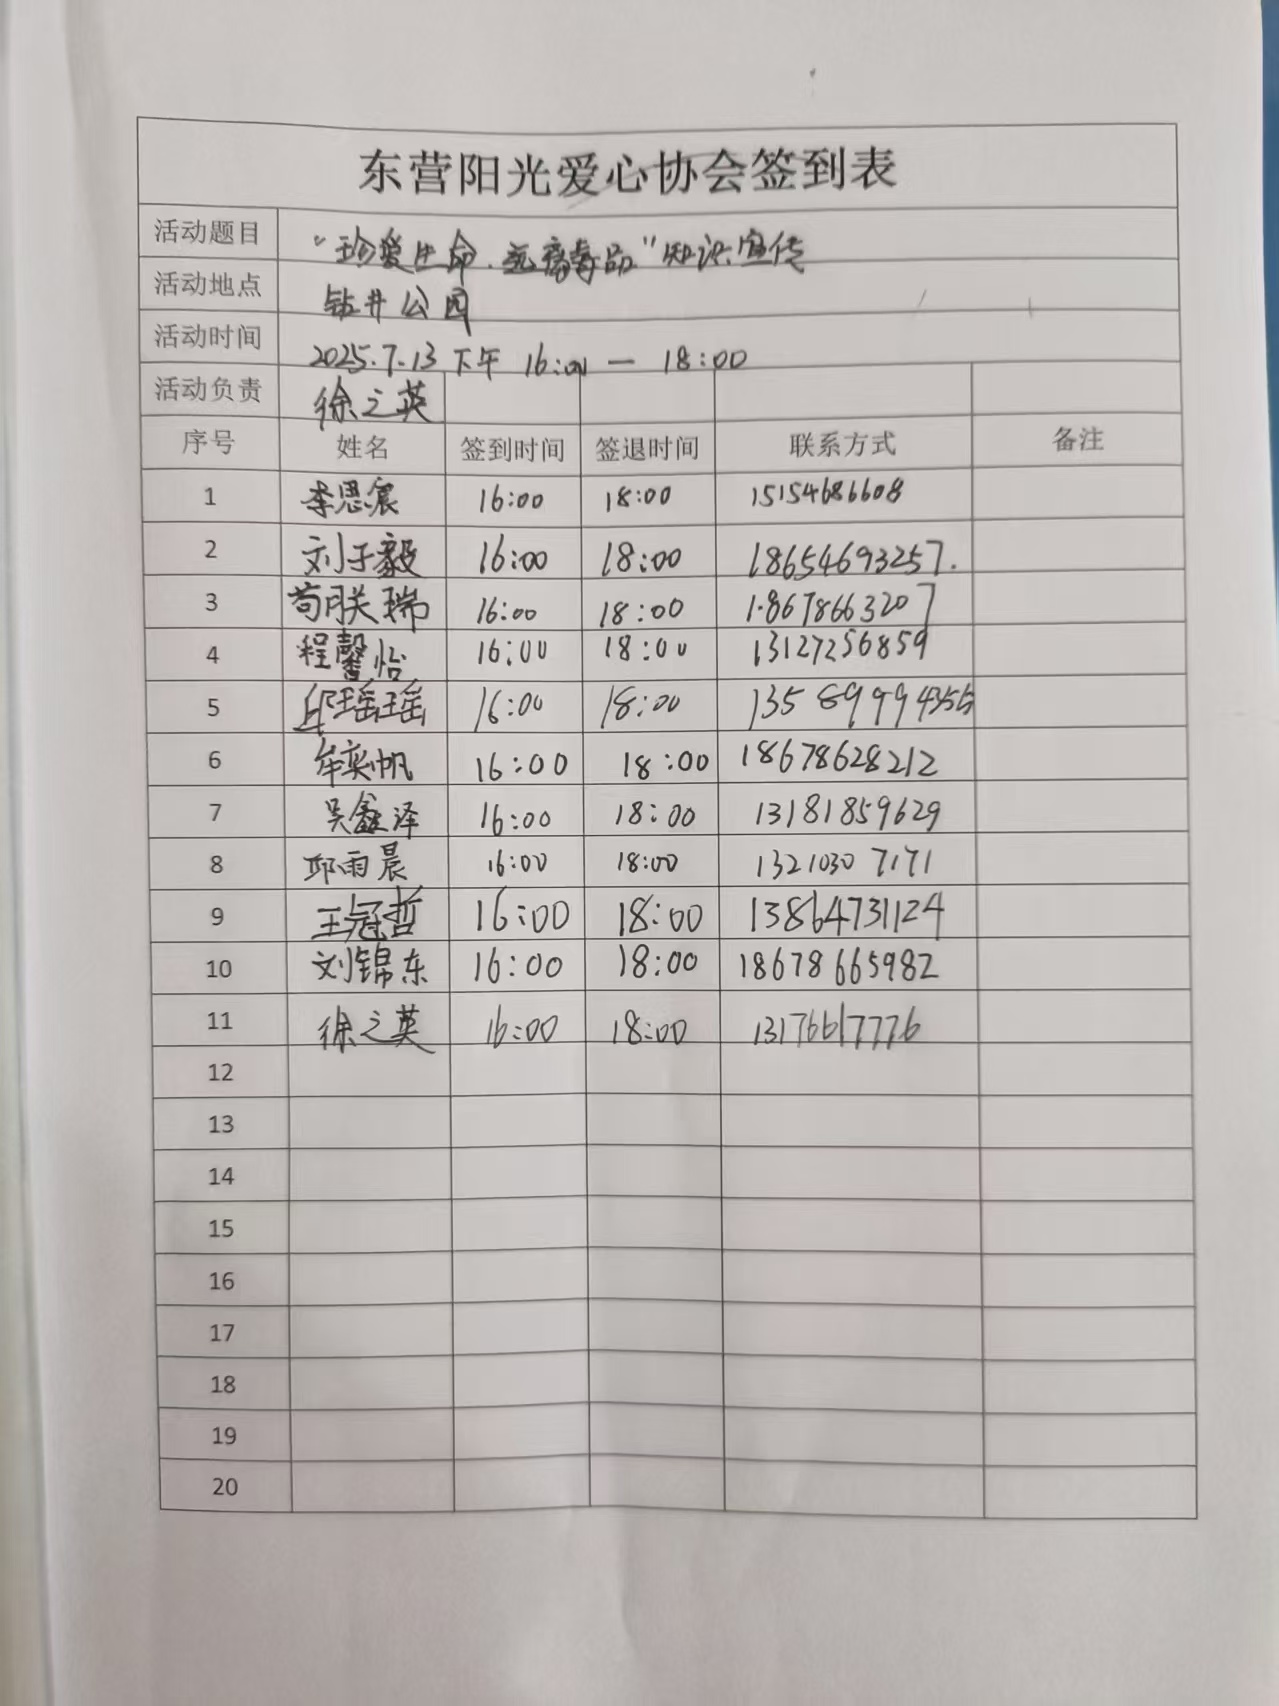 东营阳光爱心协会签到表
活动题目 “珍爱生命.远离毒品”知识宣传
活动地点 钻井公园
活动时间 2025.7.13 下午 16:00 — 18:00
活动负责 徐之英
序号 姓名 签到时间 签退时间 联系方式 备注
1 李思宸 16:00 18:00 15154686608
2 刘子毅 16:00 18:00 18654693257.
3 苟朕瑞 16:00 18:00 18678663207
4 程馨怡 16:00 18:00 13127256859
5 邱瑶瑶 16:00 18:00 135 8999
6 牟奕帆 16:00 18:00 18678628212
7 吴鑫泽 16:00 18:00 13181859629
8 邱雨晨 16:00 18:00 13210307171
9 王冠哲 16:00 18:00 13864731124
10 刘锦东 16:00 18:00 18678665982
11 徐之英 16:00 18:00 13176617776
12
13
14
15
16
17
18
19
20